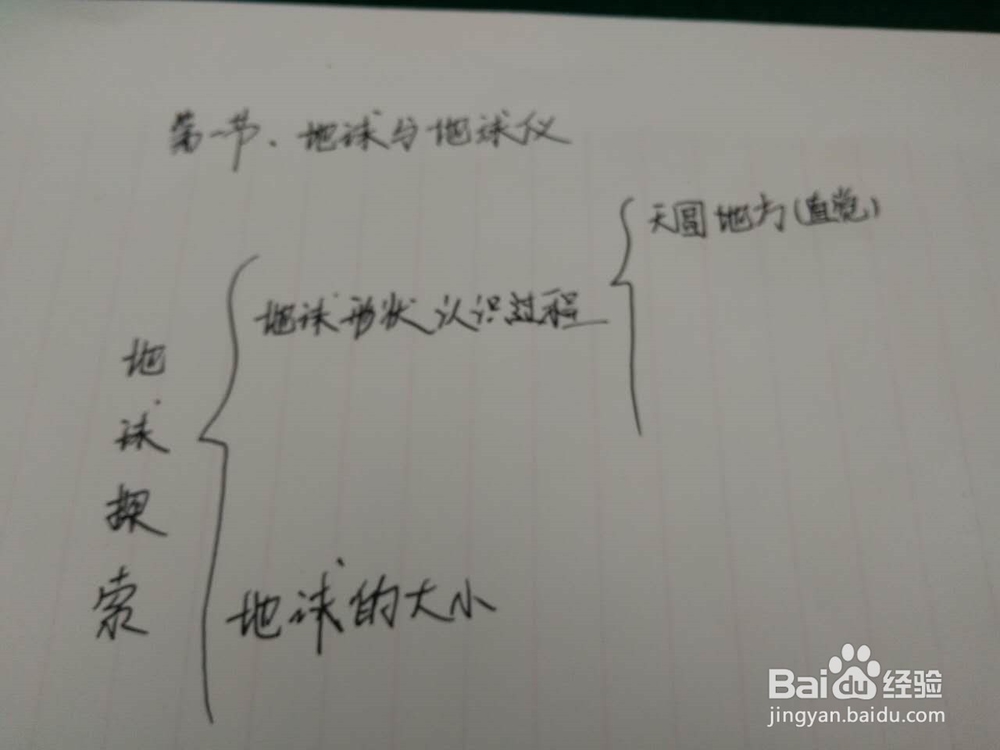 第一节、地球与地球仪
天圆地方(直觉)
地球形状认识过程
地球探索
地球的大小
Baidu经验
jingyan.baidu.com